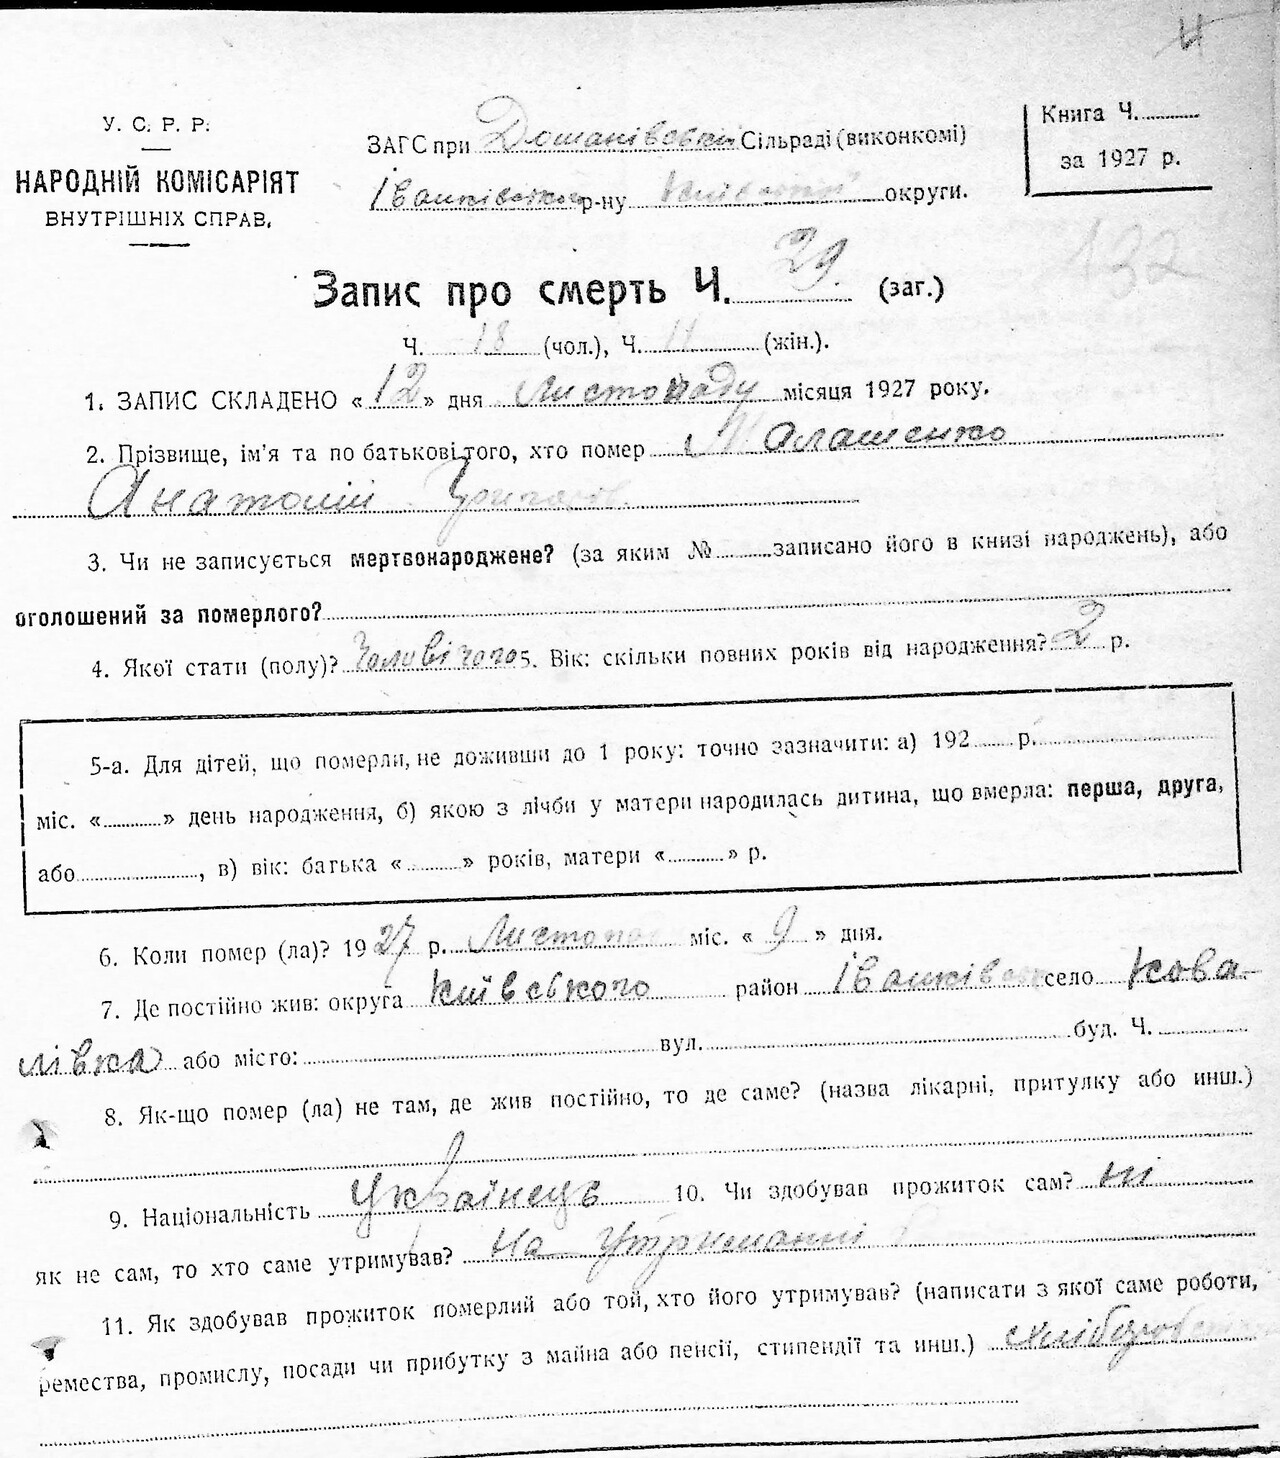 У. С. Р. Р.
НАРОДНІЙ КОМІСАРІЯТ
ВНУТРІШНІХ СПРАВ.
ЗАГС при Доманівській Сільраді (виконкомі)
Іванківського р-ну Київської округи.
Книга Ч.
за 1927 р.
132
Запис про смерть Ч. 29. (заг.)
Ч. 18 (чол.), Ч. 11 (жін.).
1. ЗАПИС СКЛАДЕНО «12» дня Листопаду місяця 1927 року.
2. Прізвище, ім'я та по батькові того, хто помер Малашенко
Анатолій Григорів.
3. Чи не записується мертвонароджене? (за яким № записано його в книзі народжень), або
оголошений за померлого?
4. Якої стати (полу)? Чоловічого 5. Вік: скільки повних років від народження? 2 р.
5-а. Для дітей, що померли, не доживши до 1 року: точно зазначити: а) 192 р.
міс. « » день народження, б) якою з лічби у матери народилась дитина, що вмерла: перша, друга,
або , в) вік: батька « » років, матери « » р.
6. Коли помер (ла)? 1927 р. Листопад міс. « 9 » дня.
7. Де постійно жив: округа Київського район Іванківськ село Кова-
лівка або місто: вул. буд. Ч.
8. Як-що помер (ла) не там, де жив постійно, то де саме? (назва лікарні, притулку або инш.)
9. Національність Українець 10. Чи здобував прожиток сам? ні
як не сам, то хто саме утримував? На утриманні
11. Як здобував прожиток померлий або той, хто його утримував? (написати з якої саме роботи,
ремества, промислу, посади чи прибутку з майна або пенсії, стипендії та инш.) хліборобства